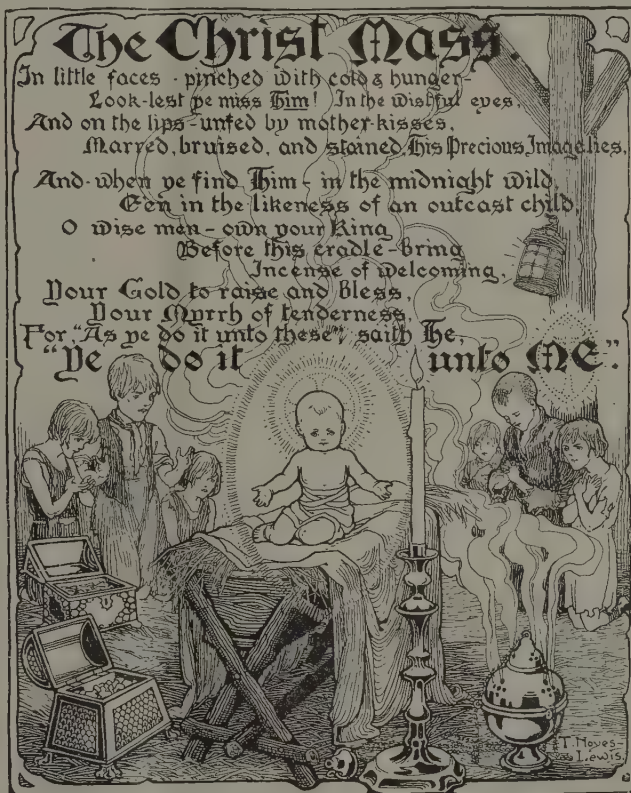 The Christ Mass.
In little faces - pinched with cold & hunger -
Look - lest ye miss Him! In the wistful eyes,
And on the lips - unfed by mother-kisses,
Marred, bruised, and stained, His Precious Image lies.
And - when ye find Him - in the midnight wild,
E'en in the likeness of an outcast child,
O wise men - own your King
Before this cradle - bring
Incense of welcoming,
Your Gold to raise and bless,
Your Myrrh of tenderness,
For, "As ye do it unto these", saith He,
"Ye do it unto ME".
T. Noyes-
Lewis.